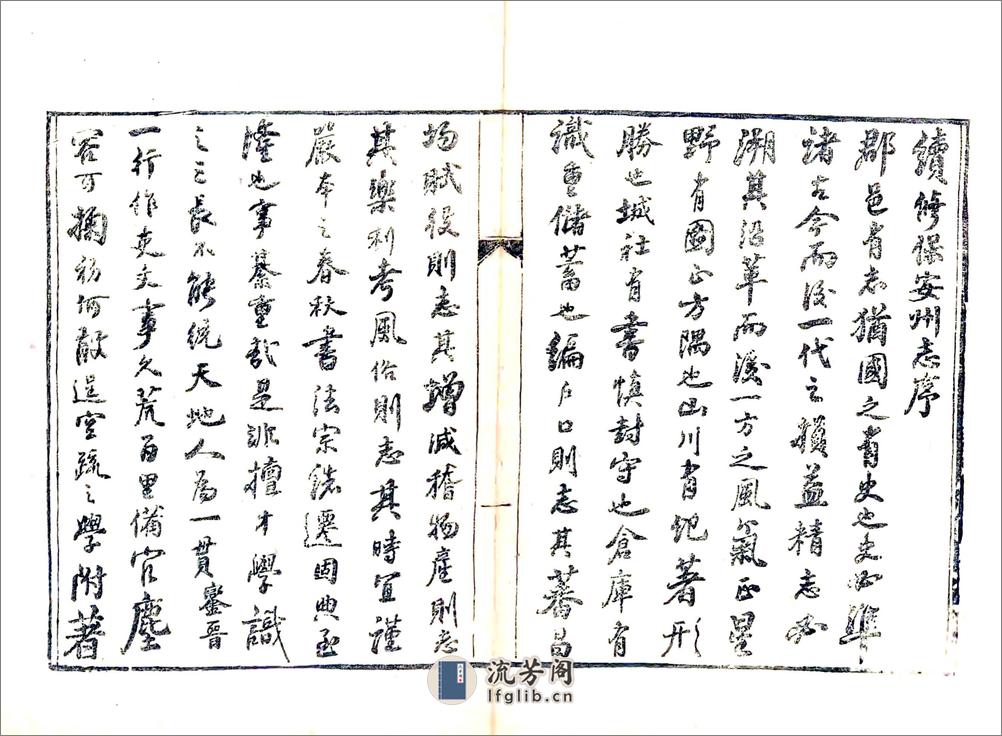 續修保安州志序
郡邑有志猶國之有史也史必準
諸古今而後一代之損益精志必
溯其沿革而後一方之風氣正星
野有圖正方隅也山川有紀著形
勝也城社有書慎封守也倉庫有
識重儲蓄也編戶口則志其蕃昌
均賦役則志其增減稽物產則志
其樂利考風俗則志其時宜謹
嚴本之春秋書法宗諸遷固典丞
隆也事綦重哉是非擅才學識
之三長不能統天地人為一貫鑾晉
一行作吏文事久荒百里備官塵
容可掬初何敢逞空疏之學附著
流芳阁
lfglib.cn